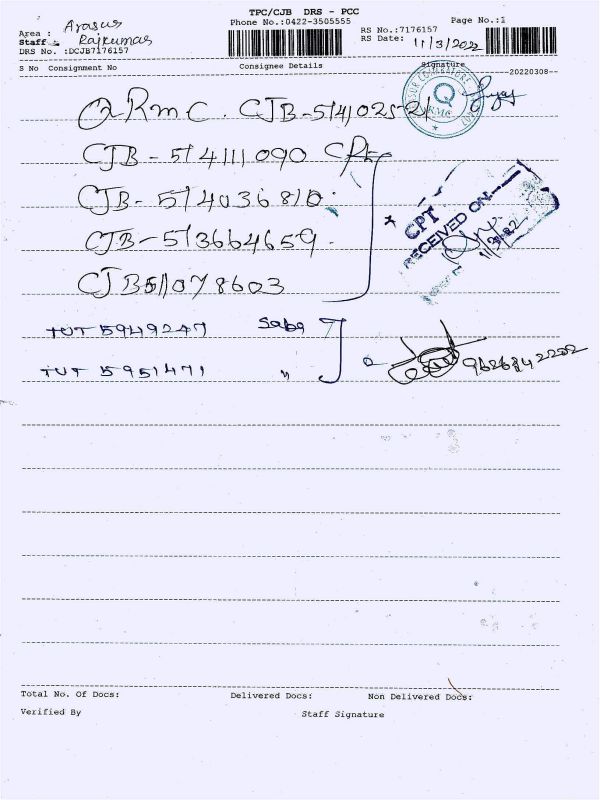 TPC/CJB DRS - PCC
Phone No.:0422-3505555
Page No.:1
Area : Arasur
Staff : Rajkumar
DRS No. :DCJB7176157
RS No.:7176157
RS Date: 11/3/2022
S No Consignment No
Consignee Details
Signature
--20220308--
QRMC. CJB-514102521
CJB - 514111090 CPT
CJB - 514036810
CJB - 513664659
CJB511078603
CPT
RECEIVED ON
QRMC
TUT 5949247 Saba
TUT 5951471 "
9626842202
Total No. Of Docs:
Delivered Docs:
Non Delivered Docs:
Verified By
Staff Signature